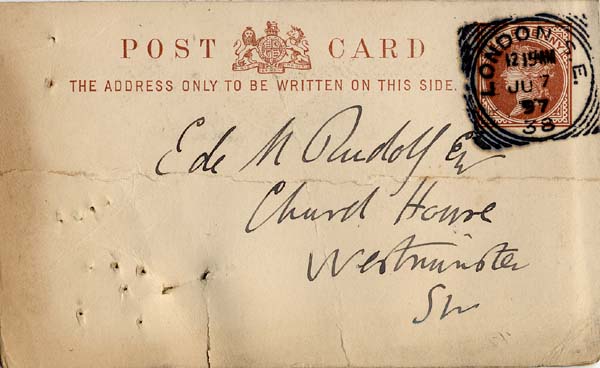 POST CARD
THE ADDRESS ONLY TO BE WRITTEN ON THIS SIDE.
LONDON S.E.
12 15 AM
JU 7
97
38
Ede M Rudolf Esq
Church House
Westminster
SW